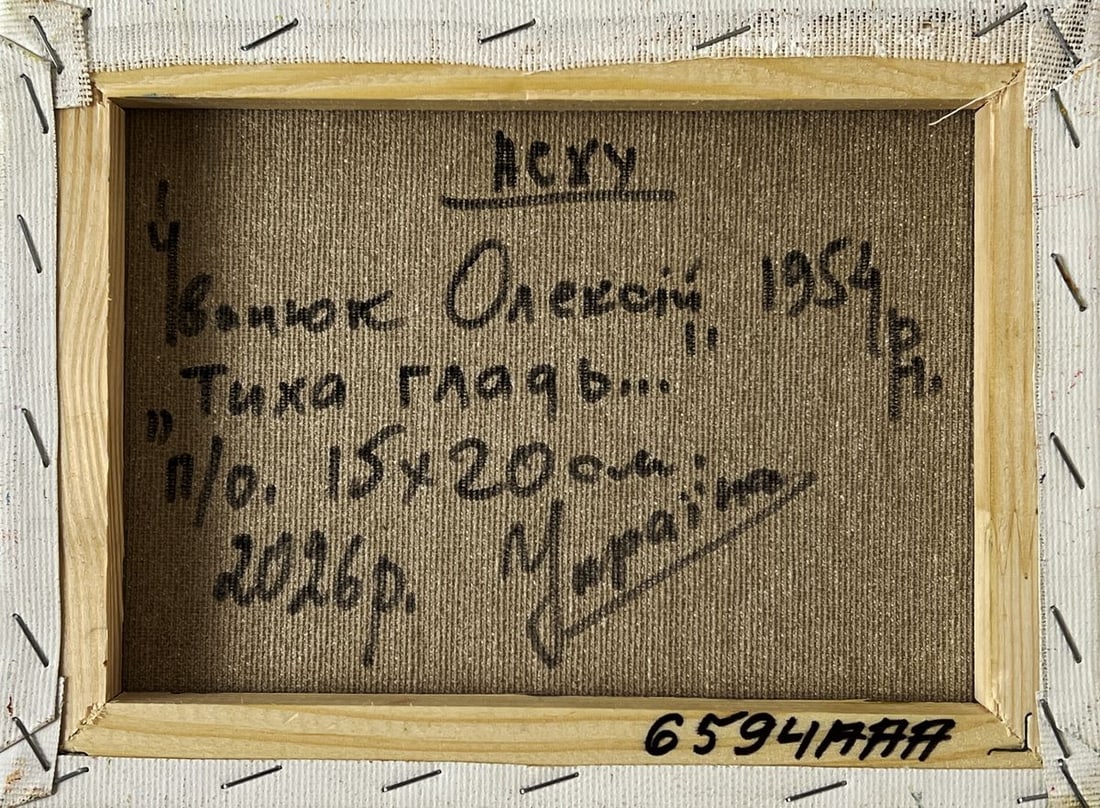 АСХУ
Іванюк Олексій, 1954 р.н.
„Тиха гладь..."
п/о. 15х20 см.
2026р. Україна
6594AAA